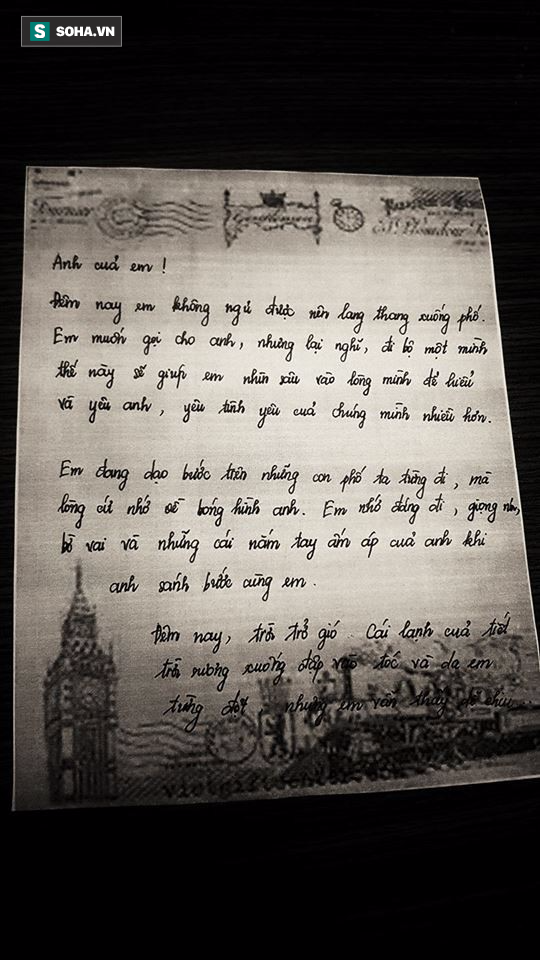 S SOHA.VN
Gentleman
Anh của em !
Đêm nay em không ngủ được nên lang thang xuống phố.
Em muốn gọi cho anh, nhưng lại nghĩ, đi bộ một mình
thế này sẽ giúp em nhìn sâu vào lòng mình để hiểu
và yêu anh, yêu tình yêu của chúng mình nhiều hơn.
Em đang dạo bước trên những con phố ta từng đi, mà
lòng cứ nhớ về bóng hình anh. Em nhớ dáng đi, giọng nói,
bờ vai và những cái nắm tay ấm áp của anh khi
anh sánh bước cùng em.
Đêm nay, trời trở gió. Cái lạnh của tiết
trời sương xuống đáp vào tóc và da em
từng đợt, nhưng em vẫn thấy dễ chịu...